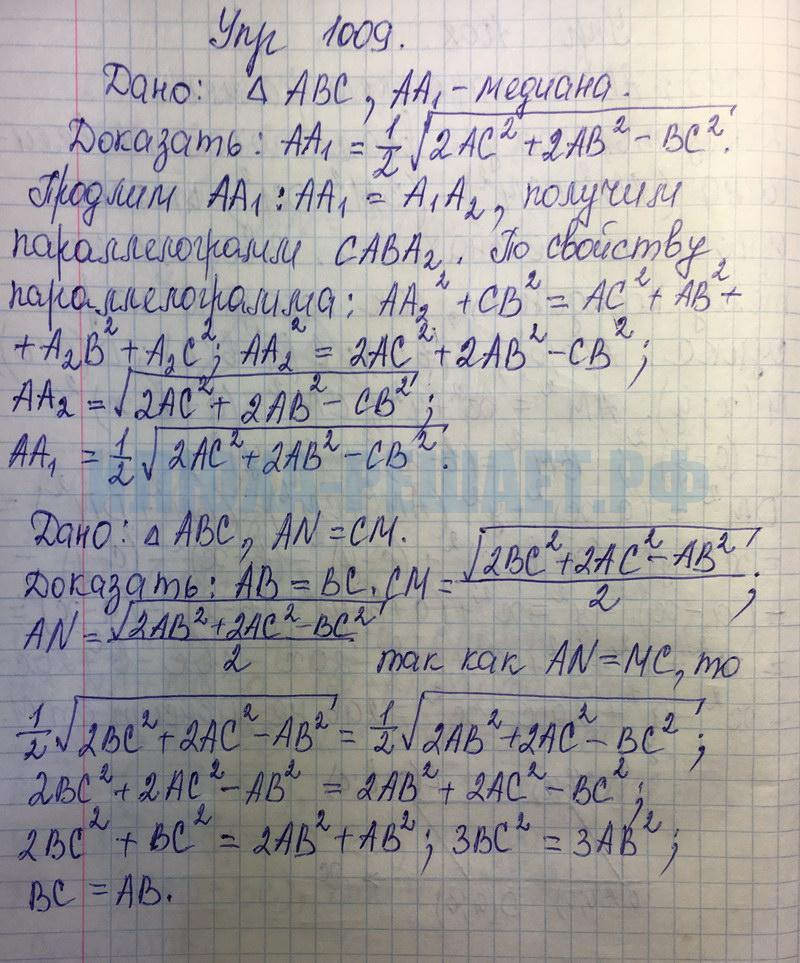 Упр 1009.
Дано: △ ABC, AA₁ - медиана.
Доказать: AA₁ = 1/2 √(2AC² + 2AB² - BC²).
Продлим AA₁ : AA₁ = A₁A₂, получим
параллелограмм CABA₂. По свойству
параллелограмма: AA₂² + CB² = AC² + AB² +
+ A₂B² + A₂C²; AA₂² = 2AC² + 2AB² - CB²;
AA₂ = √(2AC² + 2AB² - CB²);
AA₁ = 1/2 √(2AC² + 2AB² - CB²).
ШКОЛА-РЕШАЕТ.РФ
Дано: △ ABC, AN = CM.
Доказать: AB = BC. CM = √(2BC² + 2AC² - AB²)/2;
AN = √(2AB² + 2AC² - BC²)/2 так как AN = MC, то
1/2 √(2BC² + 2AC² - AB²) = 1/2 √(2AB² + 2AC² - BC²);
2BC² + 2AC² - AB² = 2AB² + 2AC² - BC²;
2BC² + BC² = 2AB² + AB²; 3BC² = 3AB²;
BC = AB.